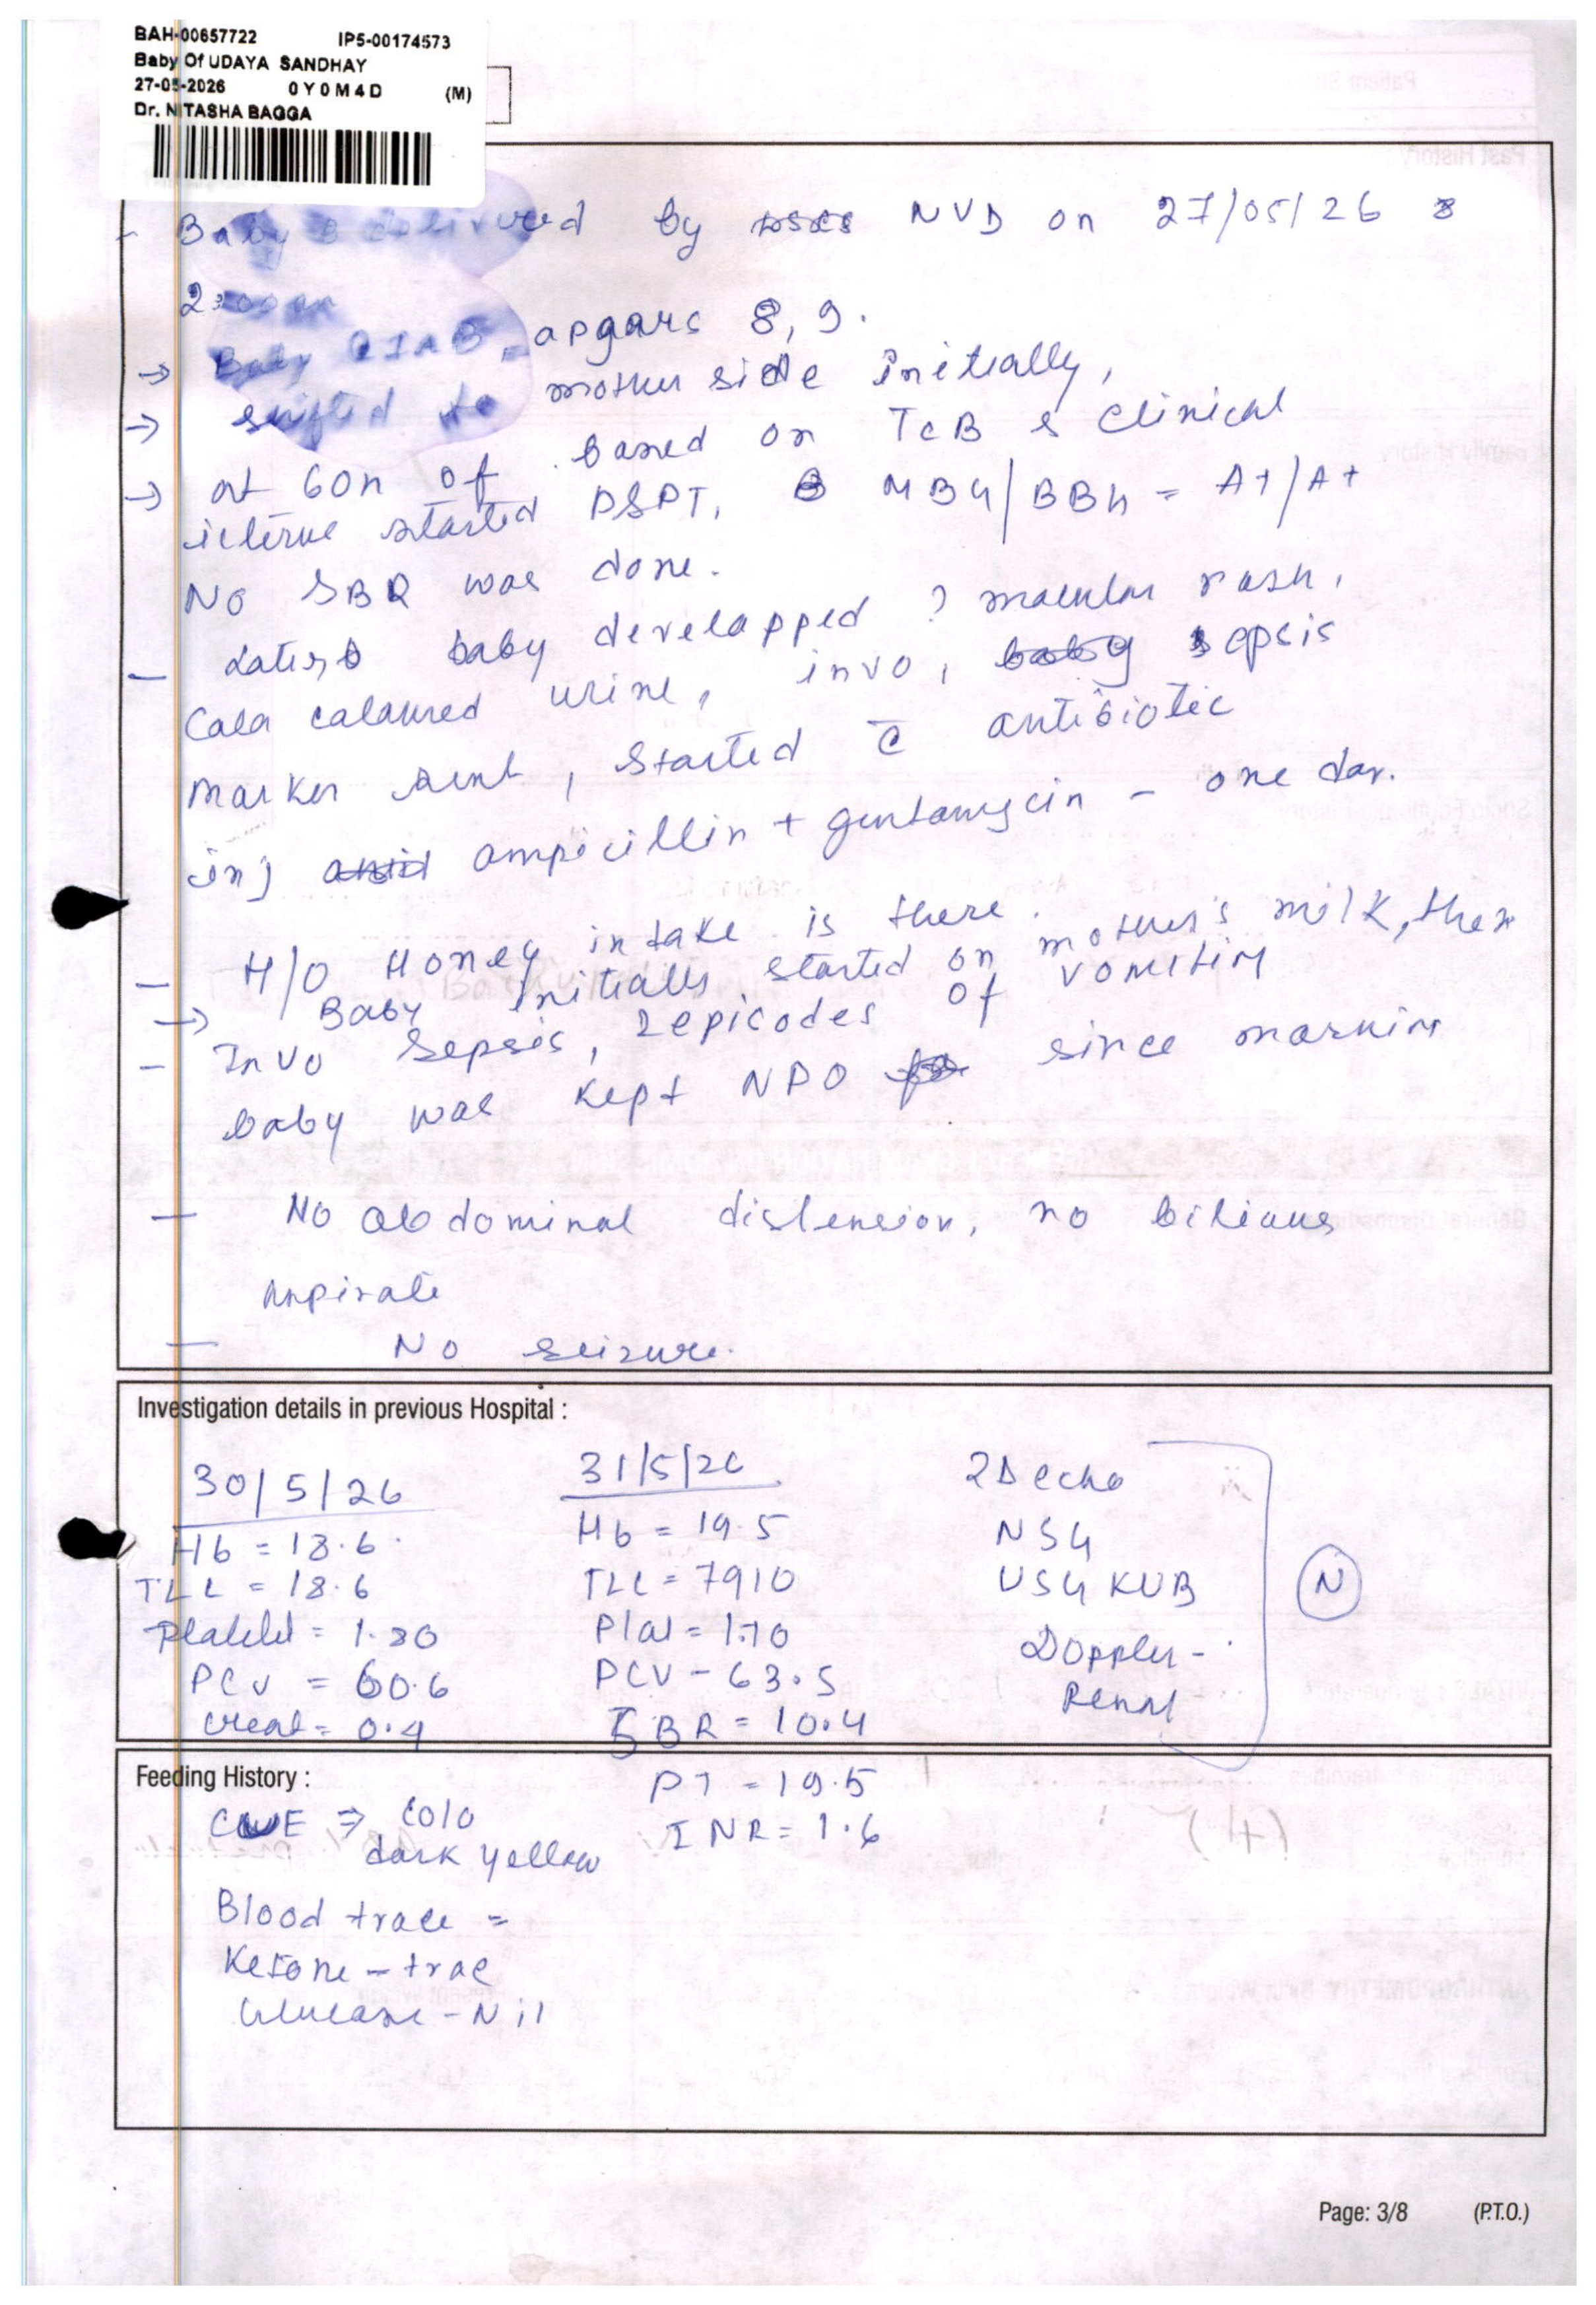 BAH-00657722 IP5-00174573
Baby Of UDAYA SANDHAY
27-05-2026 0Y0M4D (M)
Dr. NITASHA BAGGA
- Baby delivered by NVD on 27/05/26
→ Baby CIAB, apgars 8, 9.
→ shifted to mother side initially,
→ at 60h of based on TcB & clinical
icterus started DSPT, MBG/BBG = A+/A+
No SBR was done.
- Later baby developped ? macular rash,
Cola caloured urine, invo, sepsis
marker sent, started c̄ antibiotic
inj ampicillin + gentamycin - one day.
- H/O Honey intake is there.
→ Baby initially started on mother's milk, then
- Invo sepsis, 2 episodes of vomiting
baby was kept NPO since morning
- No abdominal distension, no bilious
aspirate
- No seizure.
Investigation details in previous Hospital :
30/5/26
Hb = 18.6
TLC = 18.6
Platelet = 1.30
PCV = 60.6
Creat = 0.4
31/5/26
Hb = 19.5
TLC = 7910
Plat = 1.70
PCV - 63.5
SBR = 10.4
PT = 19.5
INR = 1.6
2D echo
NSG
USG KUB
Doppler -
Renal
N
Feeding History :
CUE ⇒ colo
dark yellow
Blood trace =
Ketone - trac
Glucose - Nil
Page: 3/8 (P.T.O.)